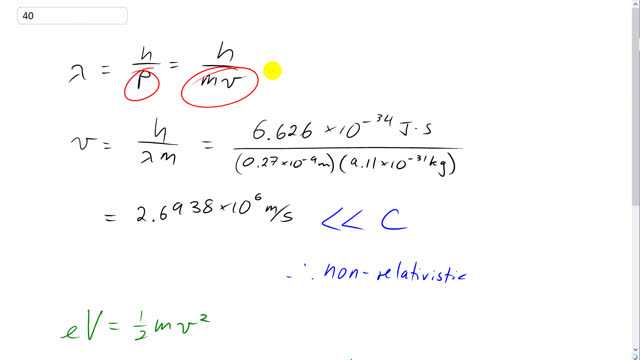 40
λ = h/p = h/mv
v = h/λm = 6.626 × 10^-34 J·s / (0.27 × 10^-9 m)(9.11 × 10^-31 kg)
= 2.6938 × 10^6 m/s << C
∴ non-relativistic
eV = 1/2 mv^2